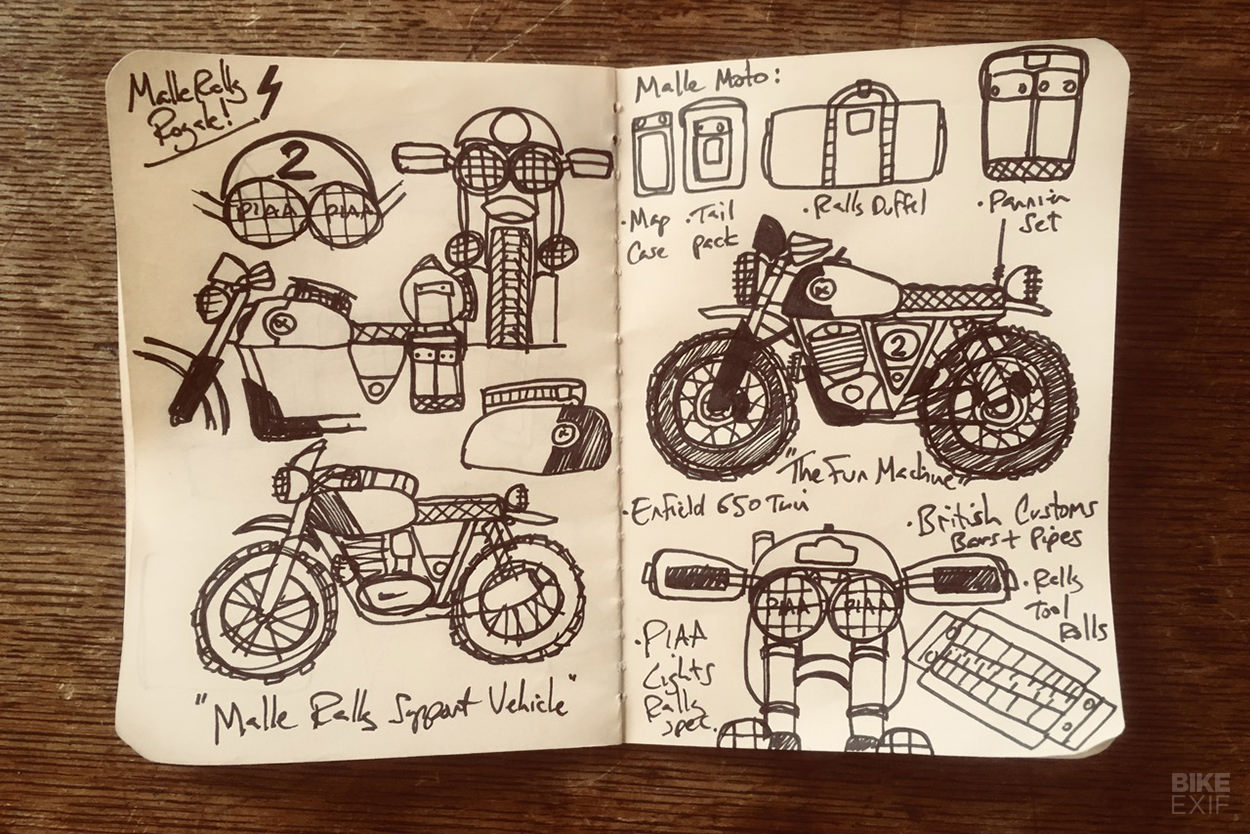 Malle Rally
Royale!
2
PIAA PIAA
"Malle Rally Support Vehicle"
Malle Moto:
· Map
Case
· Tail
pack
· Rally Duffel
· Pannier
Set
2
"The Fun Machine"
· Enfield 650 Twin
· British Customs
Bars + Pipes
PIAA PIAA
· Rally
Tool
Rolls
· PIAA
Lights
Rally
spec.
BIKE
EXIF